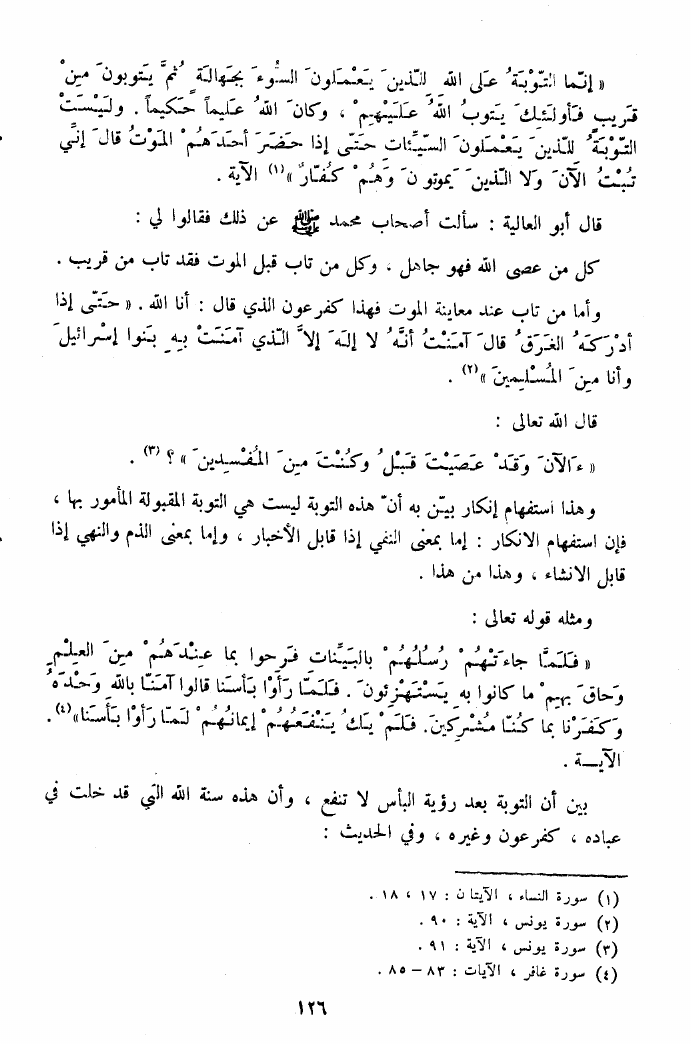 « إِنَّمَا التَّوْبَةُ عَلَى اللهِ لِلَّذِينَ يَعْمَلُونَ السُّوءَ بِجَهَالَةٍ ثُمَّ يَتُوبُونَ مِنْ
قَرِيبٍ فَأُولَئِكَ يَتُوبُ اللهُ عَلَيْهِمْ ، وكانَ اللهُ عَليماً حَكيماً . ولَيْسَتْ
التَّوْبَةُ لِلَّذِينَ يَعْمَلُونَ السَّيِّئَاتِ حَتَّى إذا حَضَرَ أحَدَهُمُ المَوْتُ قالَ إنّي
تُبْتُ الآنَ وَلا الذينَ يَموتونَ وَهُمْ كُفّارٌ »(١) الآية .
قال أبو العالية : سألت أصحاب محمد ﷺ عن ذلك فقالوا لي :
كل من عصى الله فهو جاهل ، وكل من تاب قبل الموت فقد تاب من قريب .
وأما من تاب عند معاينة الموت فهذا كفرعون الذي قال : أنا الله . « حَتّى إذا
أدْرَكَهُ الغَرَقُ قالَ آمَنْتُ أنَّهُ لا إلهَ إلاَّ الّذي آمَنَتْ بِهِ بَنوا إسْرائيلَ
وأنا مِنَ المُسْلِمينَ »(٢) .
قال الله تعالى :
« ءَالآنَ وَقَدْ عَصَيْتَ قَبْلُ وكُنْتَ مِنَ المُفْسِدِينَ » ؟ (٣) .
وهذا استفهام إنكار بيّن به أنّ هذه التوبة ليست هي التوبة المقبولة المأمور بها ،
فإن استفهام الانكار : إما بمعنى النفي إذا قابل الأخبار ، وإما بمعنى الذم والنهي إذا
قابل الانشاء ، وهذا من هذا .
ومثله قوله تعالى :
« فَلَمَّا جاءَتْهُمْ رُسُلُهُمْ بالبَيِّناتِ فَرِحوا بما عِنْدَهُمْ مِنَ العِلْمِ
وَحاقَ بِهِمْ ما كانوا بِهِ يَسْتَهْزِئونَ . فَلَمّا رَأَوْا بَأسَنا قالوا آمَنّا باللهِ وَحْدَهُ
وَكَفَرْنا بما كُنّا مُشْرِكينَ. فَلَمْ يَكُ يَنْفَعُهُمْ إيمانُهُمْ لَمّا رَأَوْا بَأسَنا»(٤).
الآيـــة .
بين أن التوبة بعد رؤية البأس لا تنفع ، وأن هذه سنة الله التي قد خلت في
عباده ، كفرعون وغيره ، وفي الحديث :
(١) سورة النساء ، الآيتان : ١٧ ، ١٨ .
(٢) سورة يونس ، الآية : ٩٠ .
(٣) سورة يونس ، الآية : ٩١ .
(٤) سورة غافر ، الآيات : ٨٣ – ٨٥ .
١٢٦